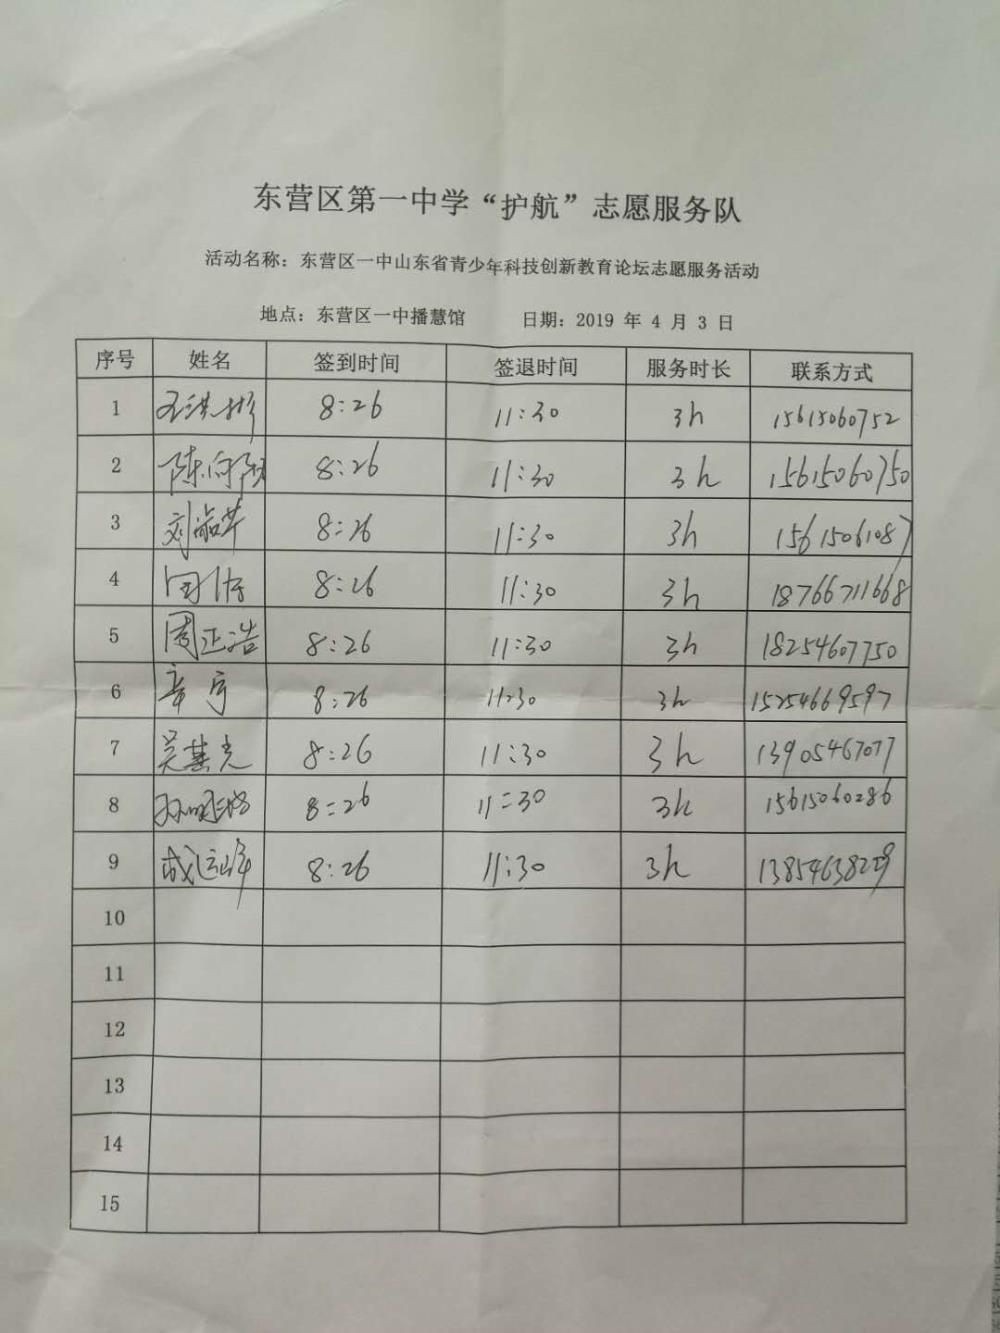 东营区第一中学“护航”志愿服务队
活动名称：东营区一中山东省青少年科技创新教育论坛志愿服务活动
地点：东营区一中播慧馆 日期：2019 年 4 月 3 日
序号 姓名 签到时间 签退时间 服务时长 联系方式
1 8:26 11:30 3h 15615060752
2 陈向阳 8:26 11:30 3h 15615060750
3 刘淑苹 8:26 11:30 3h 15615061087
4 8:26 11:30 3h 18766711668
5 周正浩 8:26 11:30 3h 18254607750
6 章宇 8:26 11:30 3h 15254669597
7 吴基光 8:26 11:30 3h 13905467077
8 8:26 11:30 3h 15615060286
9 成运峰 8:26 11:30 3h 13854638229
10
11
12
13
14
15